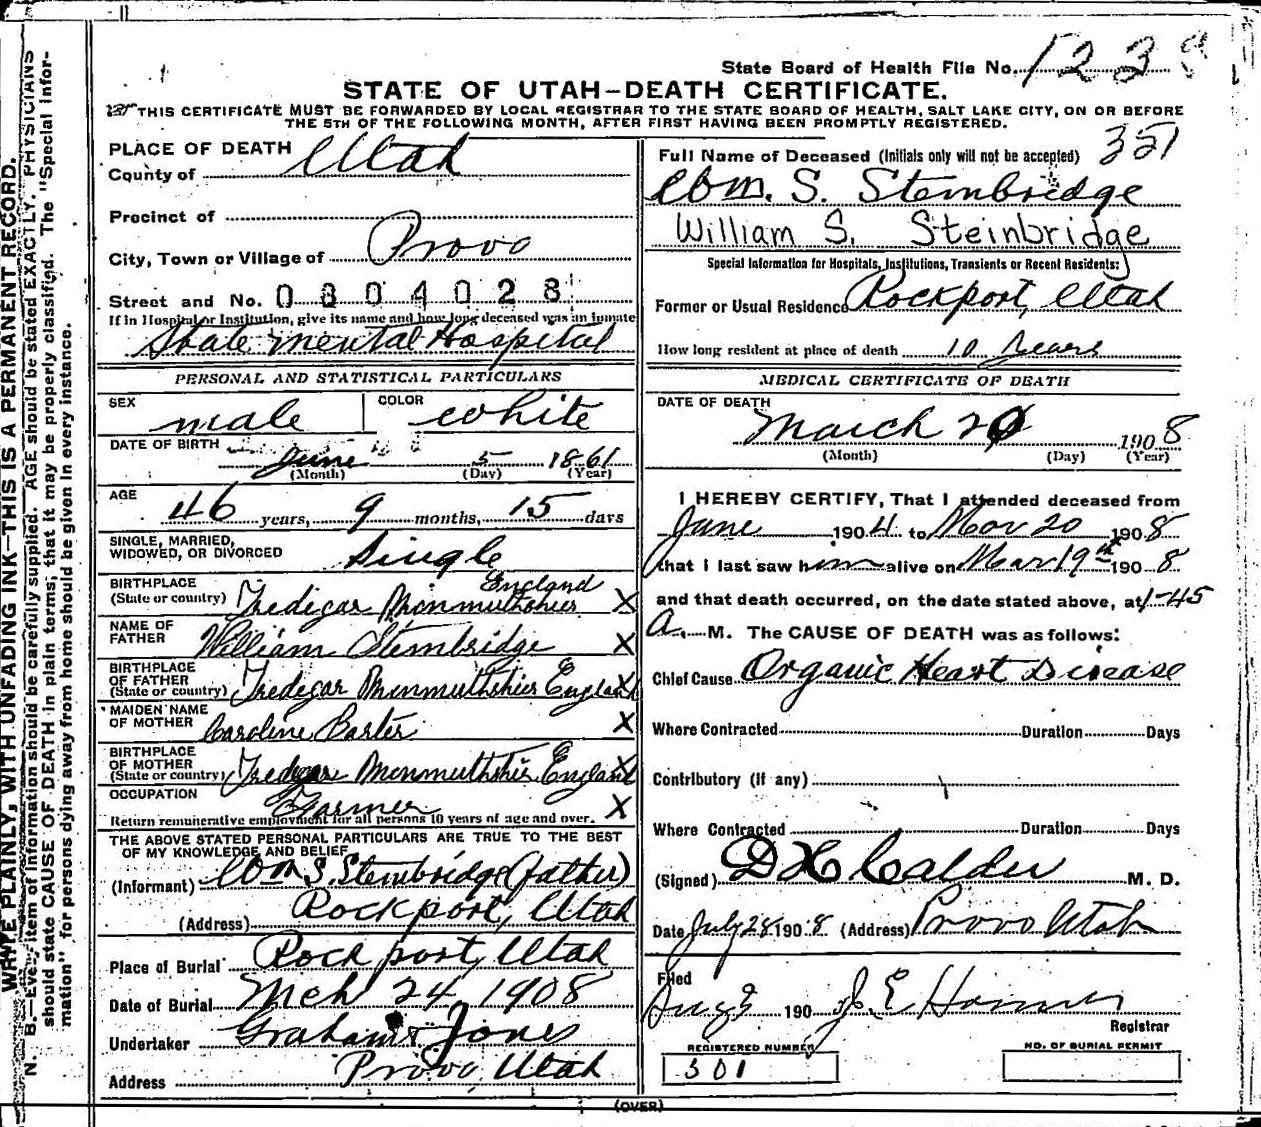 State Board of Health File No. 1223
STATE OF UTAH–DEATH CERTIFICATE.
THIS CERTIFICATE MUST BE FORWARDED BY LOCAL REGISTRAR TO THE STATE BOARD OF HEALTH, SALT LAKE CITY, ON OR BEFORE
THE 5TH OF THE FOLLOWING MONTH, AFTER FIRST HAVING BEEN PROMPTLY REGISTERED.
WRITE PLAINLY, WITH UNFADING INK—THIS IS A PERMANENT RECORD.
N. B.—Every item of information should be carefully supplied. AGE should be stated EXACTLY. PHYSICIANS
should state CAUSE OF DEATH in plain terms, that it may be properly classified. The "Special Infor-
mation" for persons dying away from home should be given in every instance.
PLACE OF DEATH
County of Utah
Precinct of
City, Town or Village of Provo
Street and No. 0304028
If in Hospital or Institution, give its name and how long deceased was an inmate
State Mental Hospital
PERSONAL AND STATISTICAL PARTICULARS
SEX male COLOR white
DATE OF BIRTH June 5 1861
(Month) (Day) (Year)
AGE 46 years, 9 months, 15 days
SINGLE, MARRIED,
WIDOWED, OR DIVORCED Single
BIRTHPLACE England
(State or country) Tredigar Minmuthshier X
NAME OF
FATHER William Stembridge X
BIRTHPLACE
OF FATHER
(State or country) Tredigar Minmuthshier England X
MAIDEN NAME
OF MOTHER Caroline Barter X
BIRTHPLACE
OF MOTHER
(State or country) Tredigar Minmuthshier England
OCCUPATION Farmer X
Return remunerative employment for all persons 10 years of age and over.
THE ABOVE STATED PERSONAL PARTICULARS ARE TRUE TO THE BEST
OF MY KNOWLEDGE AND BELIEF
(Informant) Wm S. Stembridge (father)
(Address) Rockport, Utah
Place of Burial Rockport, Utah
Date of Burial Mch 24 1908
Undertaker Graham & Jones
Address Provo Utah
Full Name of Deceased (Initials only will not be accepted) 351
Wm. S. Stembridge
William S. Steinbridge
Special Information for Hospitals, Institutions, Transients or Recent Residents:
Former or Usual Residence Rockport, Utah
How long resident at place of death 10 years
MEDICAL CERTIFICATE OF DEATH
DATE OF DEATH
March 20 1908
(Month) (Day) (Year)
I HEREBY CERTIFY, That I attended deceased from
June 1904 to Mar 20 1908
that I last saw him alive on Mar 19th 1908
and that death occurred, on the date stated above, at 1-45
A. M. The CAUSE OF DEATH was as follows:
Chief Cause Organic Heart Disease
Where Contracted Duration Days
Contributory (if any)
Where Contracted Duration Days
(Signed) D H Calder M. D.
Date July 28 1908 (Address) Provo Utah
Filed
Aug 3 190 J. E. Homer
Registrar
REGISTERED NUMBER NO. OF BURIAL PERMIT
301
(OVER)